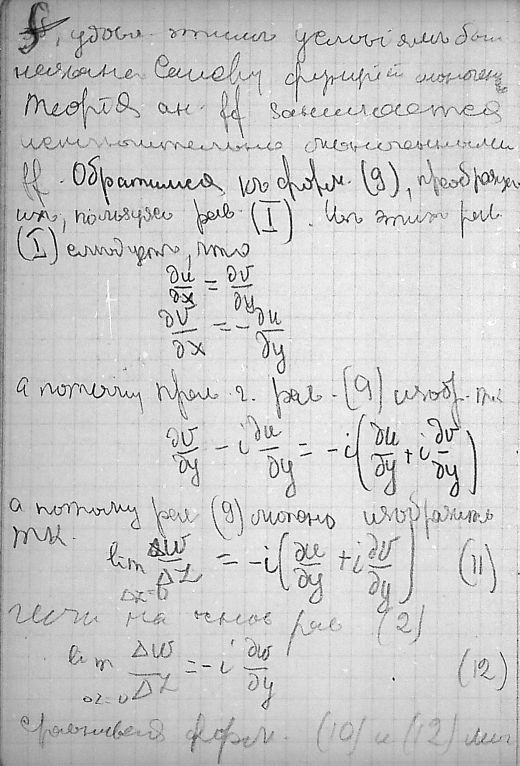 f, удовл. этимъ условіямъ был
названа Коши функціей моноген
Теорія ан. ff занимается
исключительно моногенными
ff. Обратимся къ форм. (9), преобразуя
ихъ, пользуясь рав. (I). Изъ этихъ рав.
(I) слѣдуетъ, что
∂u/∂x = ∂v/∂y
∂v/∂x = -∂u/∂y
а потому прав. ч. рав. (9) изобр. тк
∂v/∂y - i ∂u/∂y = -i(∂u/∂y + i ∂v/∂y)
а потому рав (9) можно изобразить
тк.
lim Δw/Δz = -i(∂u/∂y + i ∂v/∂y) (11)
Δx=0
на основ рав (2)
lim Δw/Δz = -i ∂w/∂y (12)
Δz=0
Сравнивая форм. (10) и (12) мы